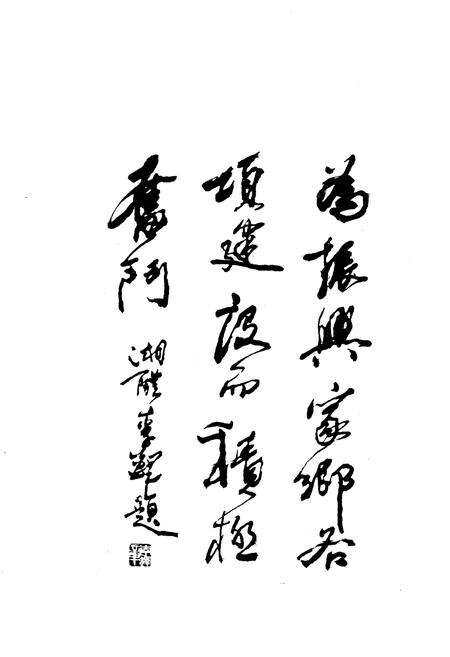 為振興家鄉各
項建設而積極
奮鬥
湘醴李鐸題